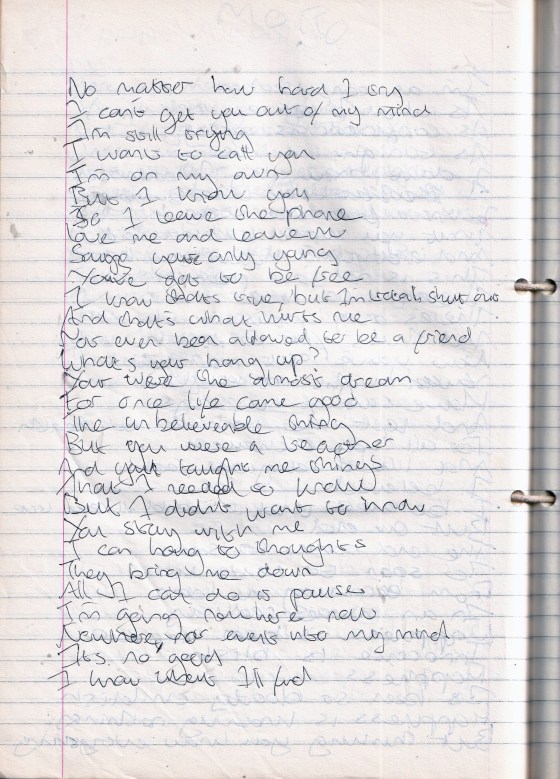 No matter how hard I try
I cant get you out of my mind
I'm still trying
I want to call you
I'm on my own
But I know you
So I leave the phone
Love me and leave
youre only young
You've got to be free
I know thats true but I'm shut out
And that's what hurts me
Not even been allowed to be a friend
Whats your hang up?
You were the almost dream
For once life came good
The unbelieveable thing
But you were a teacher
And you taught me things
That I needed to know
But I didn't want to know
You stay with me
I can hang to thoughts
They bring me down
All I can do is pause
I'm going nowhere now
Nowhere, not even into my mind
Its no good
I know what I'll find